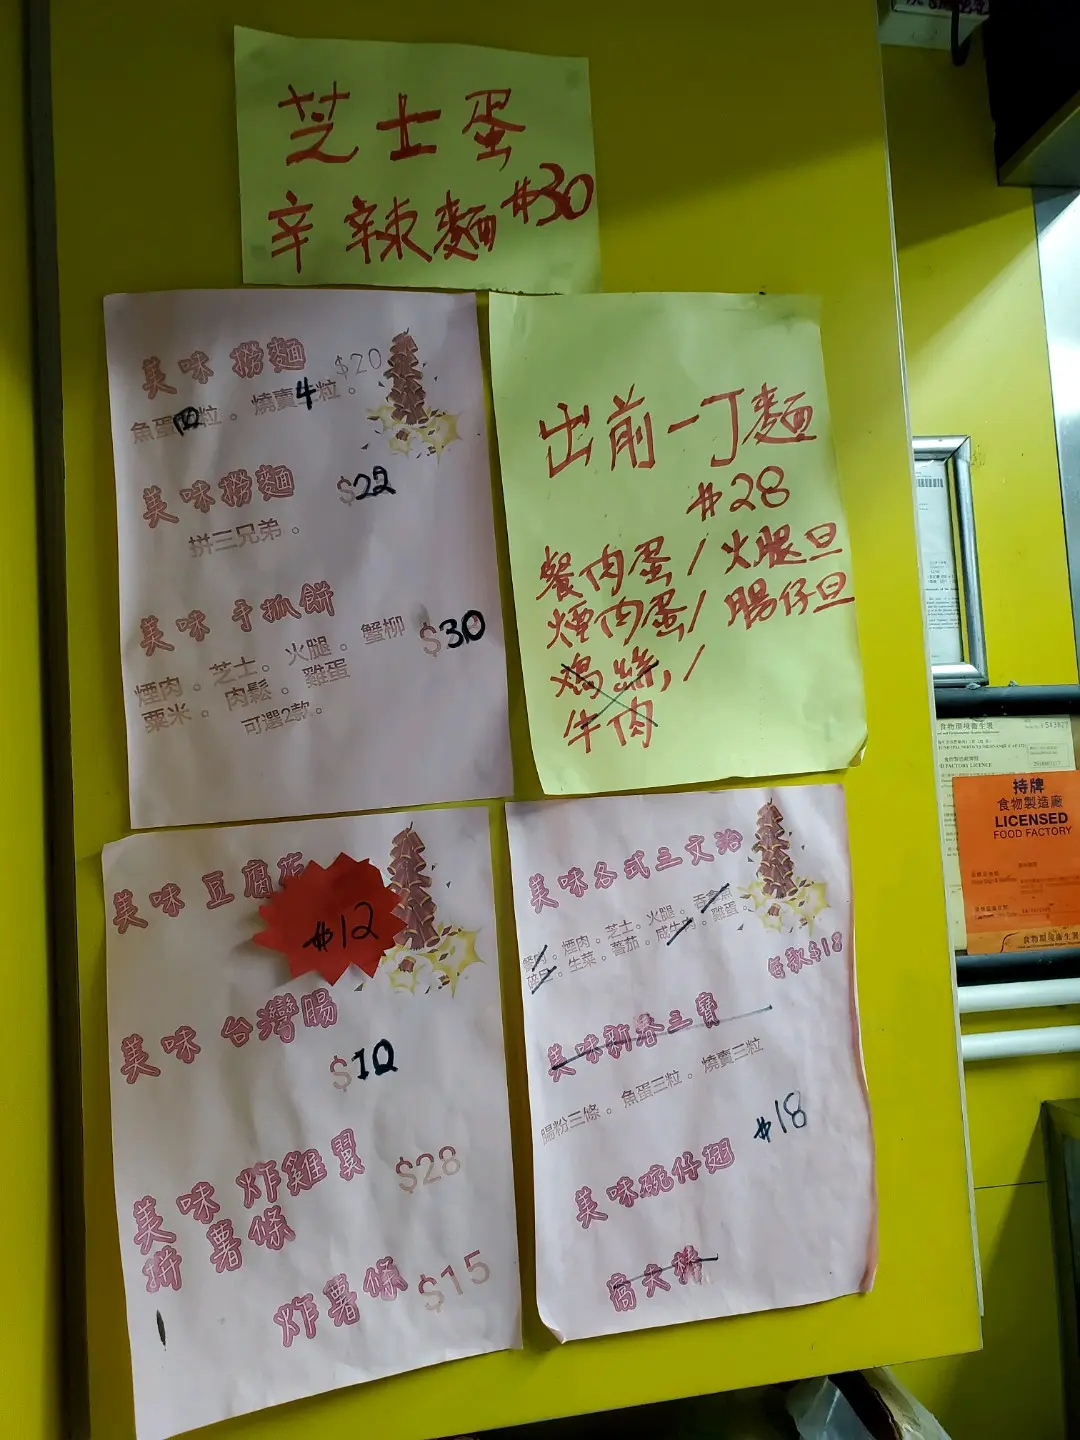 芝士蛋
辛辣麵 $30
美味 撈麵 $20
魚蛋四粒。燒賣4粒。
美味撈麵 $22
拼三兄弟。
美味 手抓餅 $30
煙肉。芝士。火腿。蟹柳
粟米。肉鬆。雞蛋
可選2款。
出前一丁麵
$28
餐肉蛋/火腿旦
煙肉蛋/腸仔旦
鳮絲,/
牛肉
美味 豆腐花
$12
美味 台灣腸
$10
美味 炸雞翼
拼 薯條 $28
炸薯條 $15
美味各式三文治
餐肉。煙肉。芝士。火腿。吞拿魚
碎蛋。生菜。蕃茄。咸牛肉。雞蛋。
每款$18
美味新春三寶
腸粉三條。魚蛋三粒。燒賣三粒
$18
美味碗仔翅
高夫棒
食物環境衞生署
543827
FACTORY LICENCE
持牌
食物製造廠
LICENSED
FOOD FACTORY
食物環境衞生署